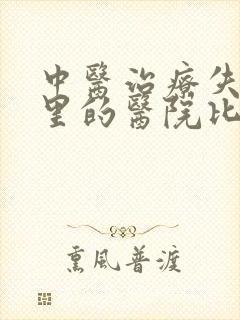 中醫治療失
里的醫院比
熏風普渡